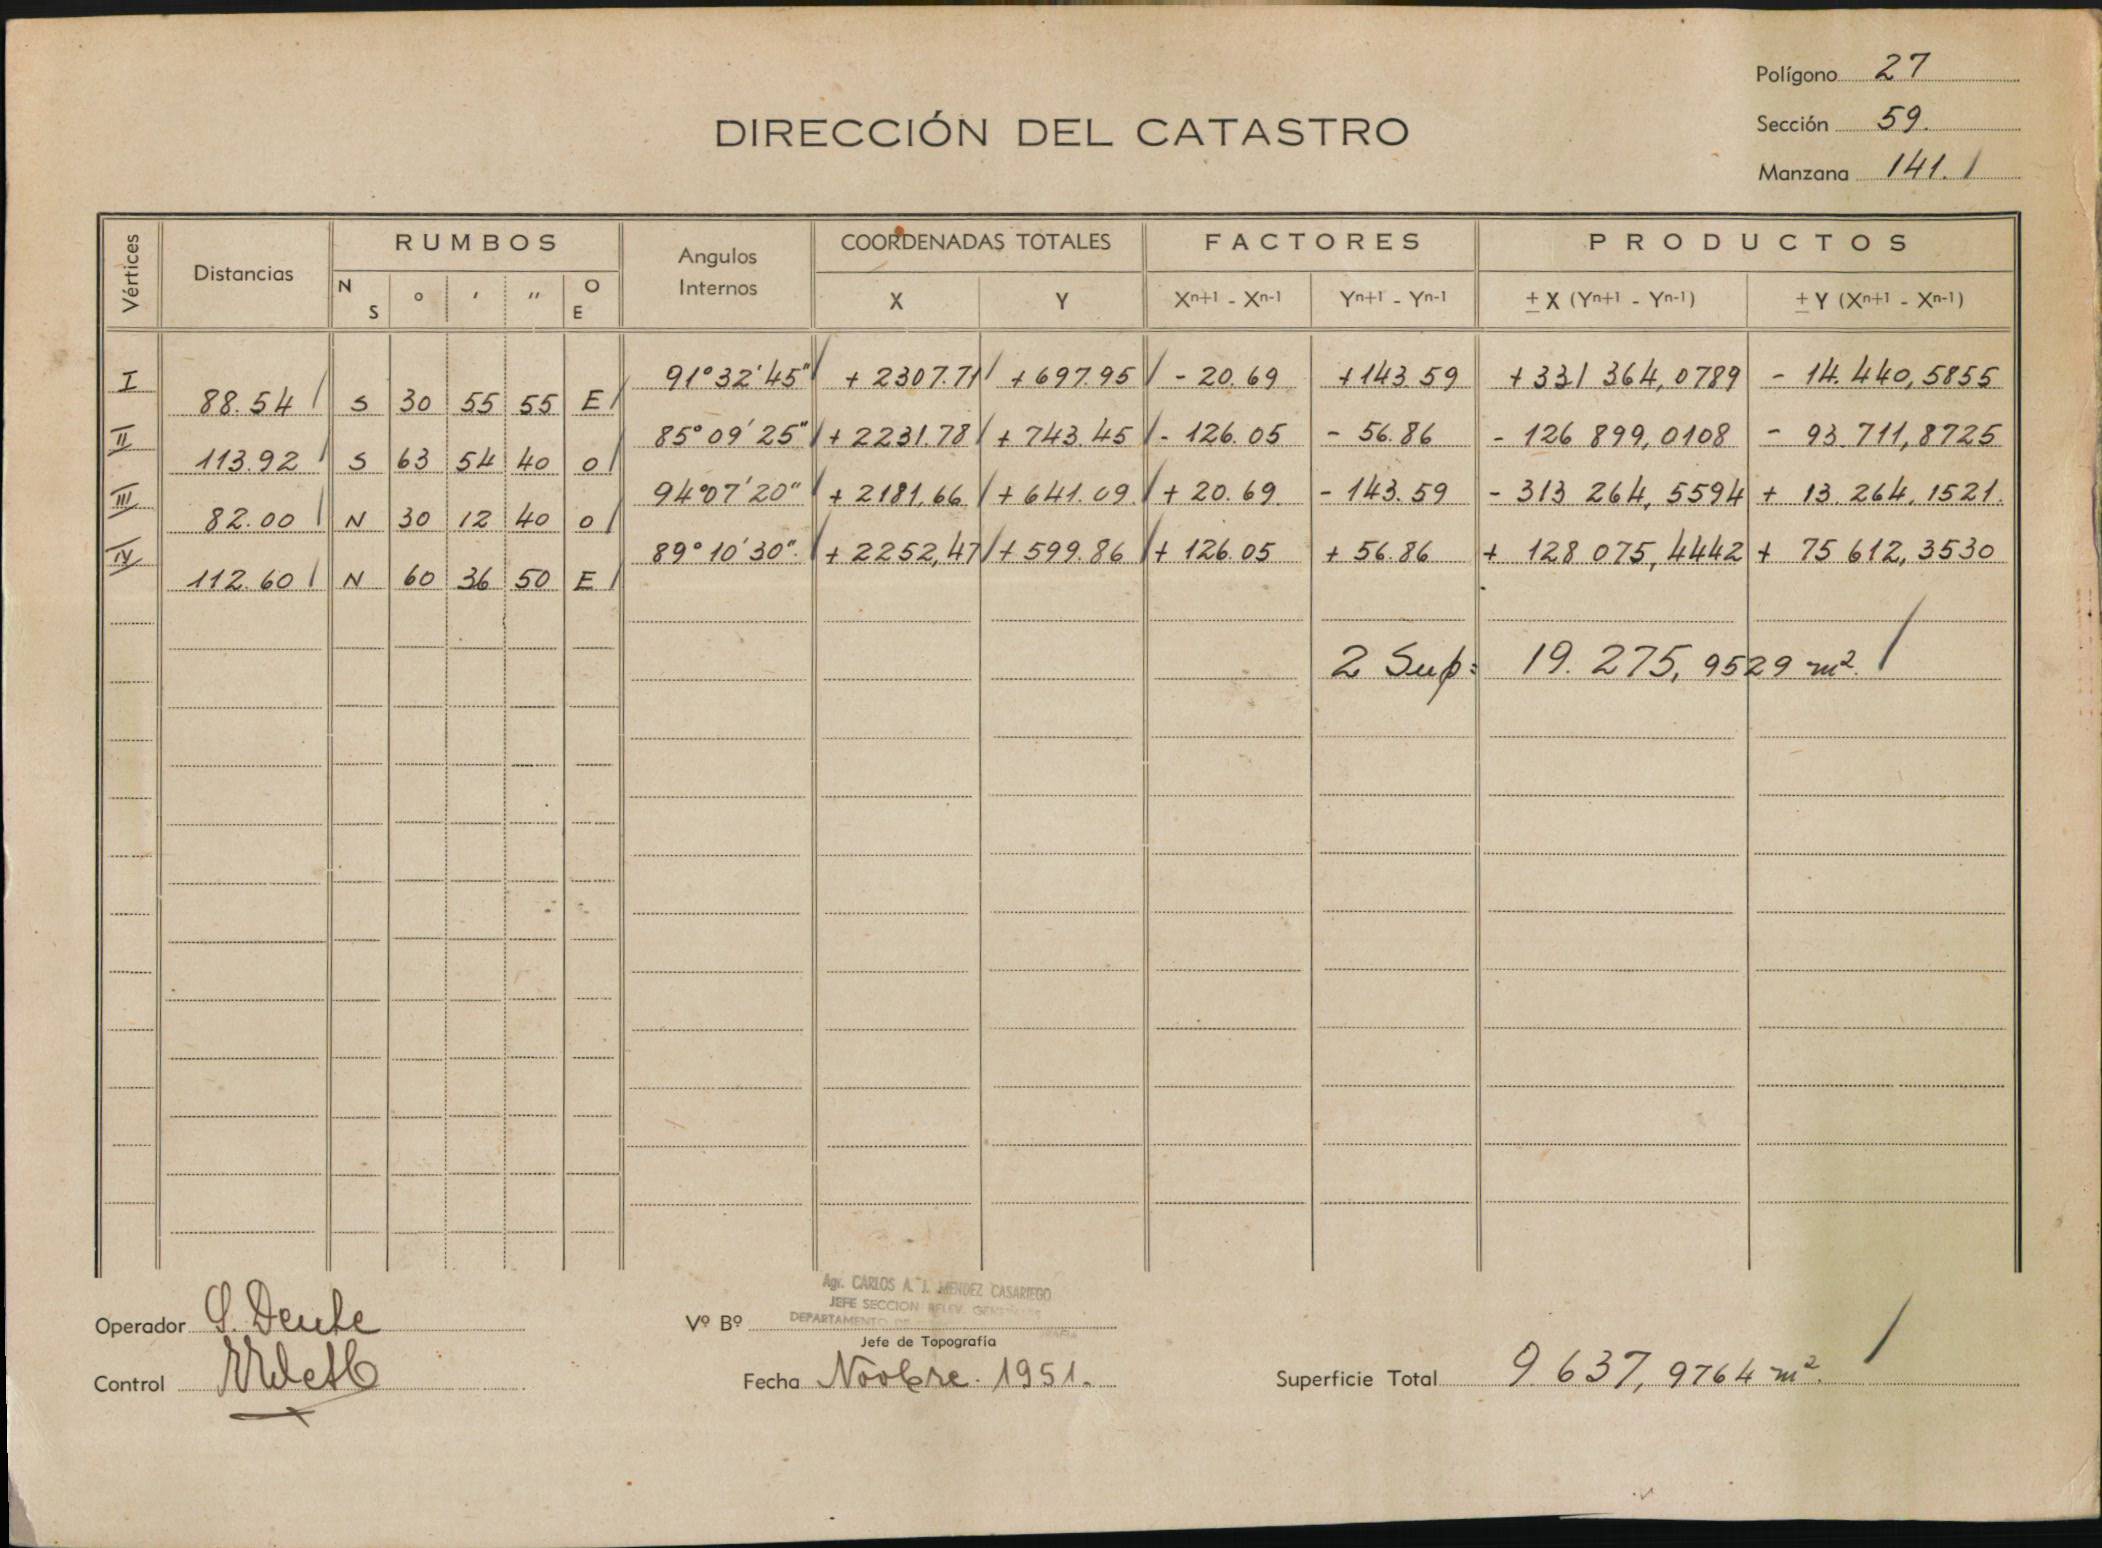 Polígono 27
DIRECCIÓN DEL CATASTRO
Sección 59.
Manzana 141.
Vértices Distancias RUMBOS Angulos Internos COORDENADAS TOTALES FACTORES PRODUCTOS
N S ° ' '' O E X Y Xn+1 - Xn-1 Yn+1 - Yn-1 ± X (Yn+1 - Yn-1) ± Y (Xn+1 - Xn-1)
I 91°32'45" + 2307.71 + 697.95 - 20.69 + 143 59 + 331 364,0789 - 14.440,5855
88.54 S 30 55 55 E
II 85°09'25" + 2231.78 + 743.45 - 126.05 - 56.86 - 126 899,0108 - 93.711,8725
113.92 S 63 54 40 O
III 94°07'20" + 2181,66 + 641.09 + 20.69 - 143.59 - 313 264,5594 + 13.264,1521.
82.00 N 30 12 40 O
IV 89°10'30". + 2252,47 + 599.86 + 126.05 + 56.86 + 128 075,4442 + 75 612,3530
112.60 N 60 36 50 E
2 Sup: 19.275,9529 m².
Agr. CARLOS A. J. MENDEZ CASARIEGO
JEFE SECCION RELEV. GENERALES
DEPARTAMENTO DE
Operador S. Deute
Vº Bº
Jefe de Topografía
Control
Fecha Novbre. 1951.
Superficie Total 9.637,9764 m².